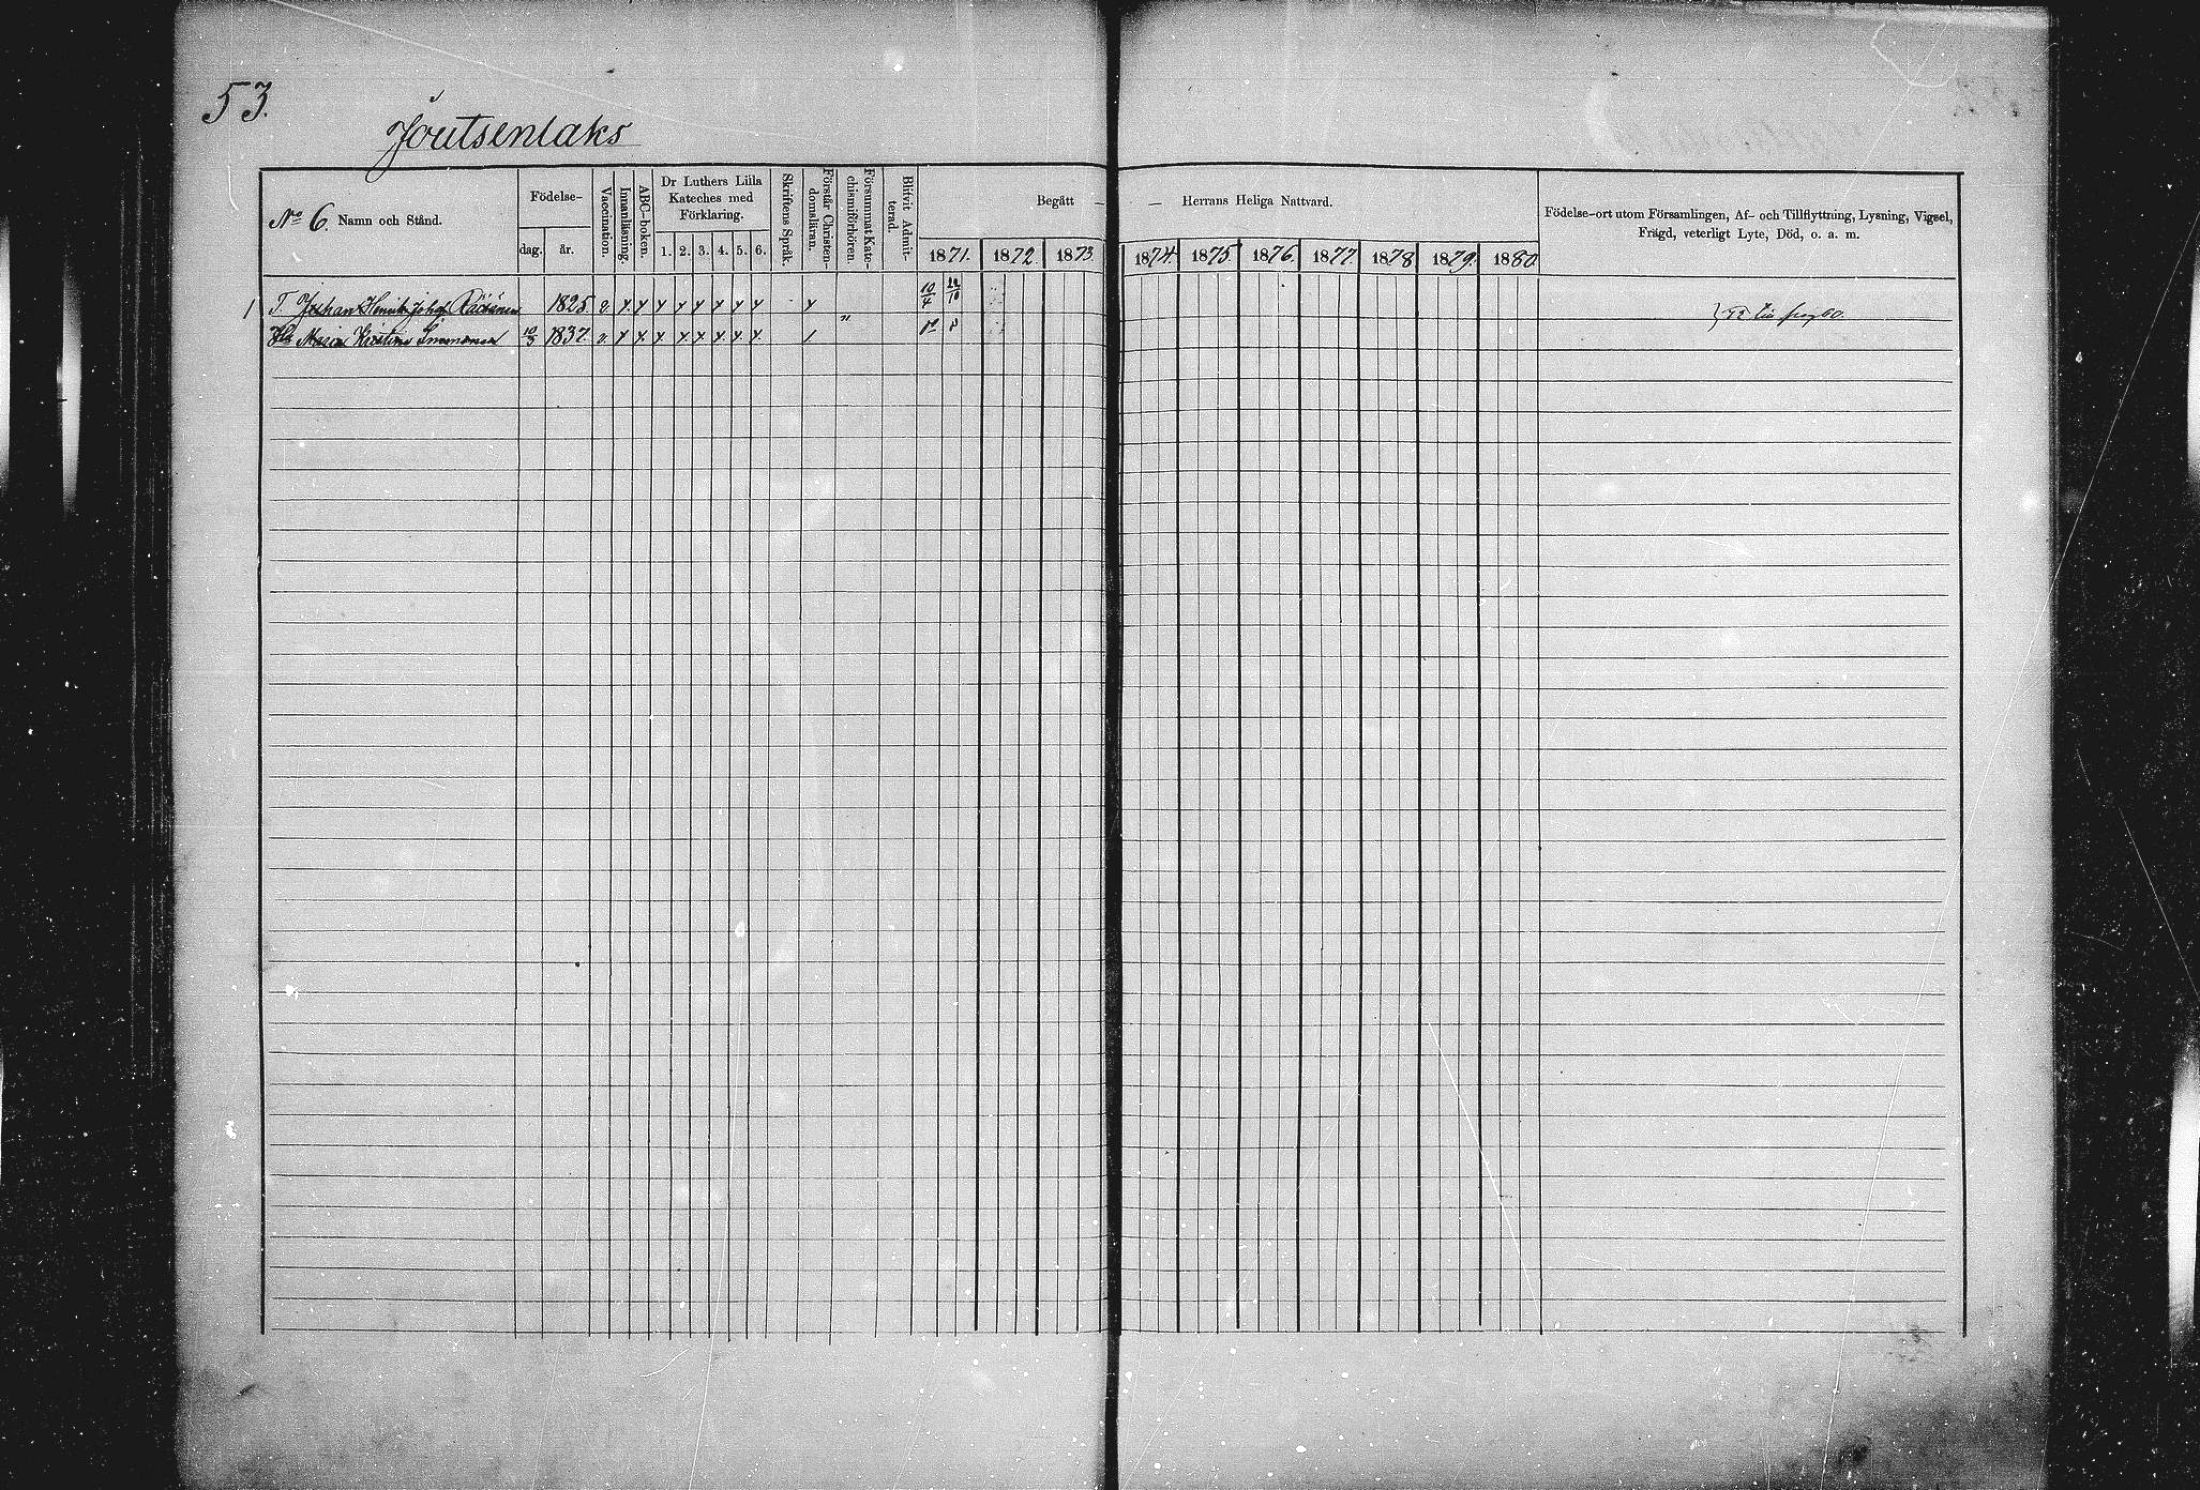 53.
Joutsenlaks
No 6. Namn och Stånd.
Födelse-
dag. år.
Vaccination.
Innanläsning.
ABC-boken.
Dr Luthers Lilla Kateches med Förklaring.
1. 2. 3. 4. 5. 6.
Skriftens Språk.
Förstår Christendomsläran.
Försummat Katechismiförhören
Blifvit Admitterad.
Begått — — Herrans Heliga Nattvard.
1871. 1872. 1873 1874. 1875 1876. 1877. 1878 1879. 1880
Födelse-ort utom Församlingen, Af- och Tillflyttning, Lysning, Vigsel,
Frägd, veterligt Lyte, Död, o. a. m.
1 T. Johan Henrik 1825. 10/4
Maria Kristina 10/3 1837.